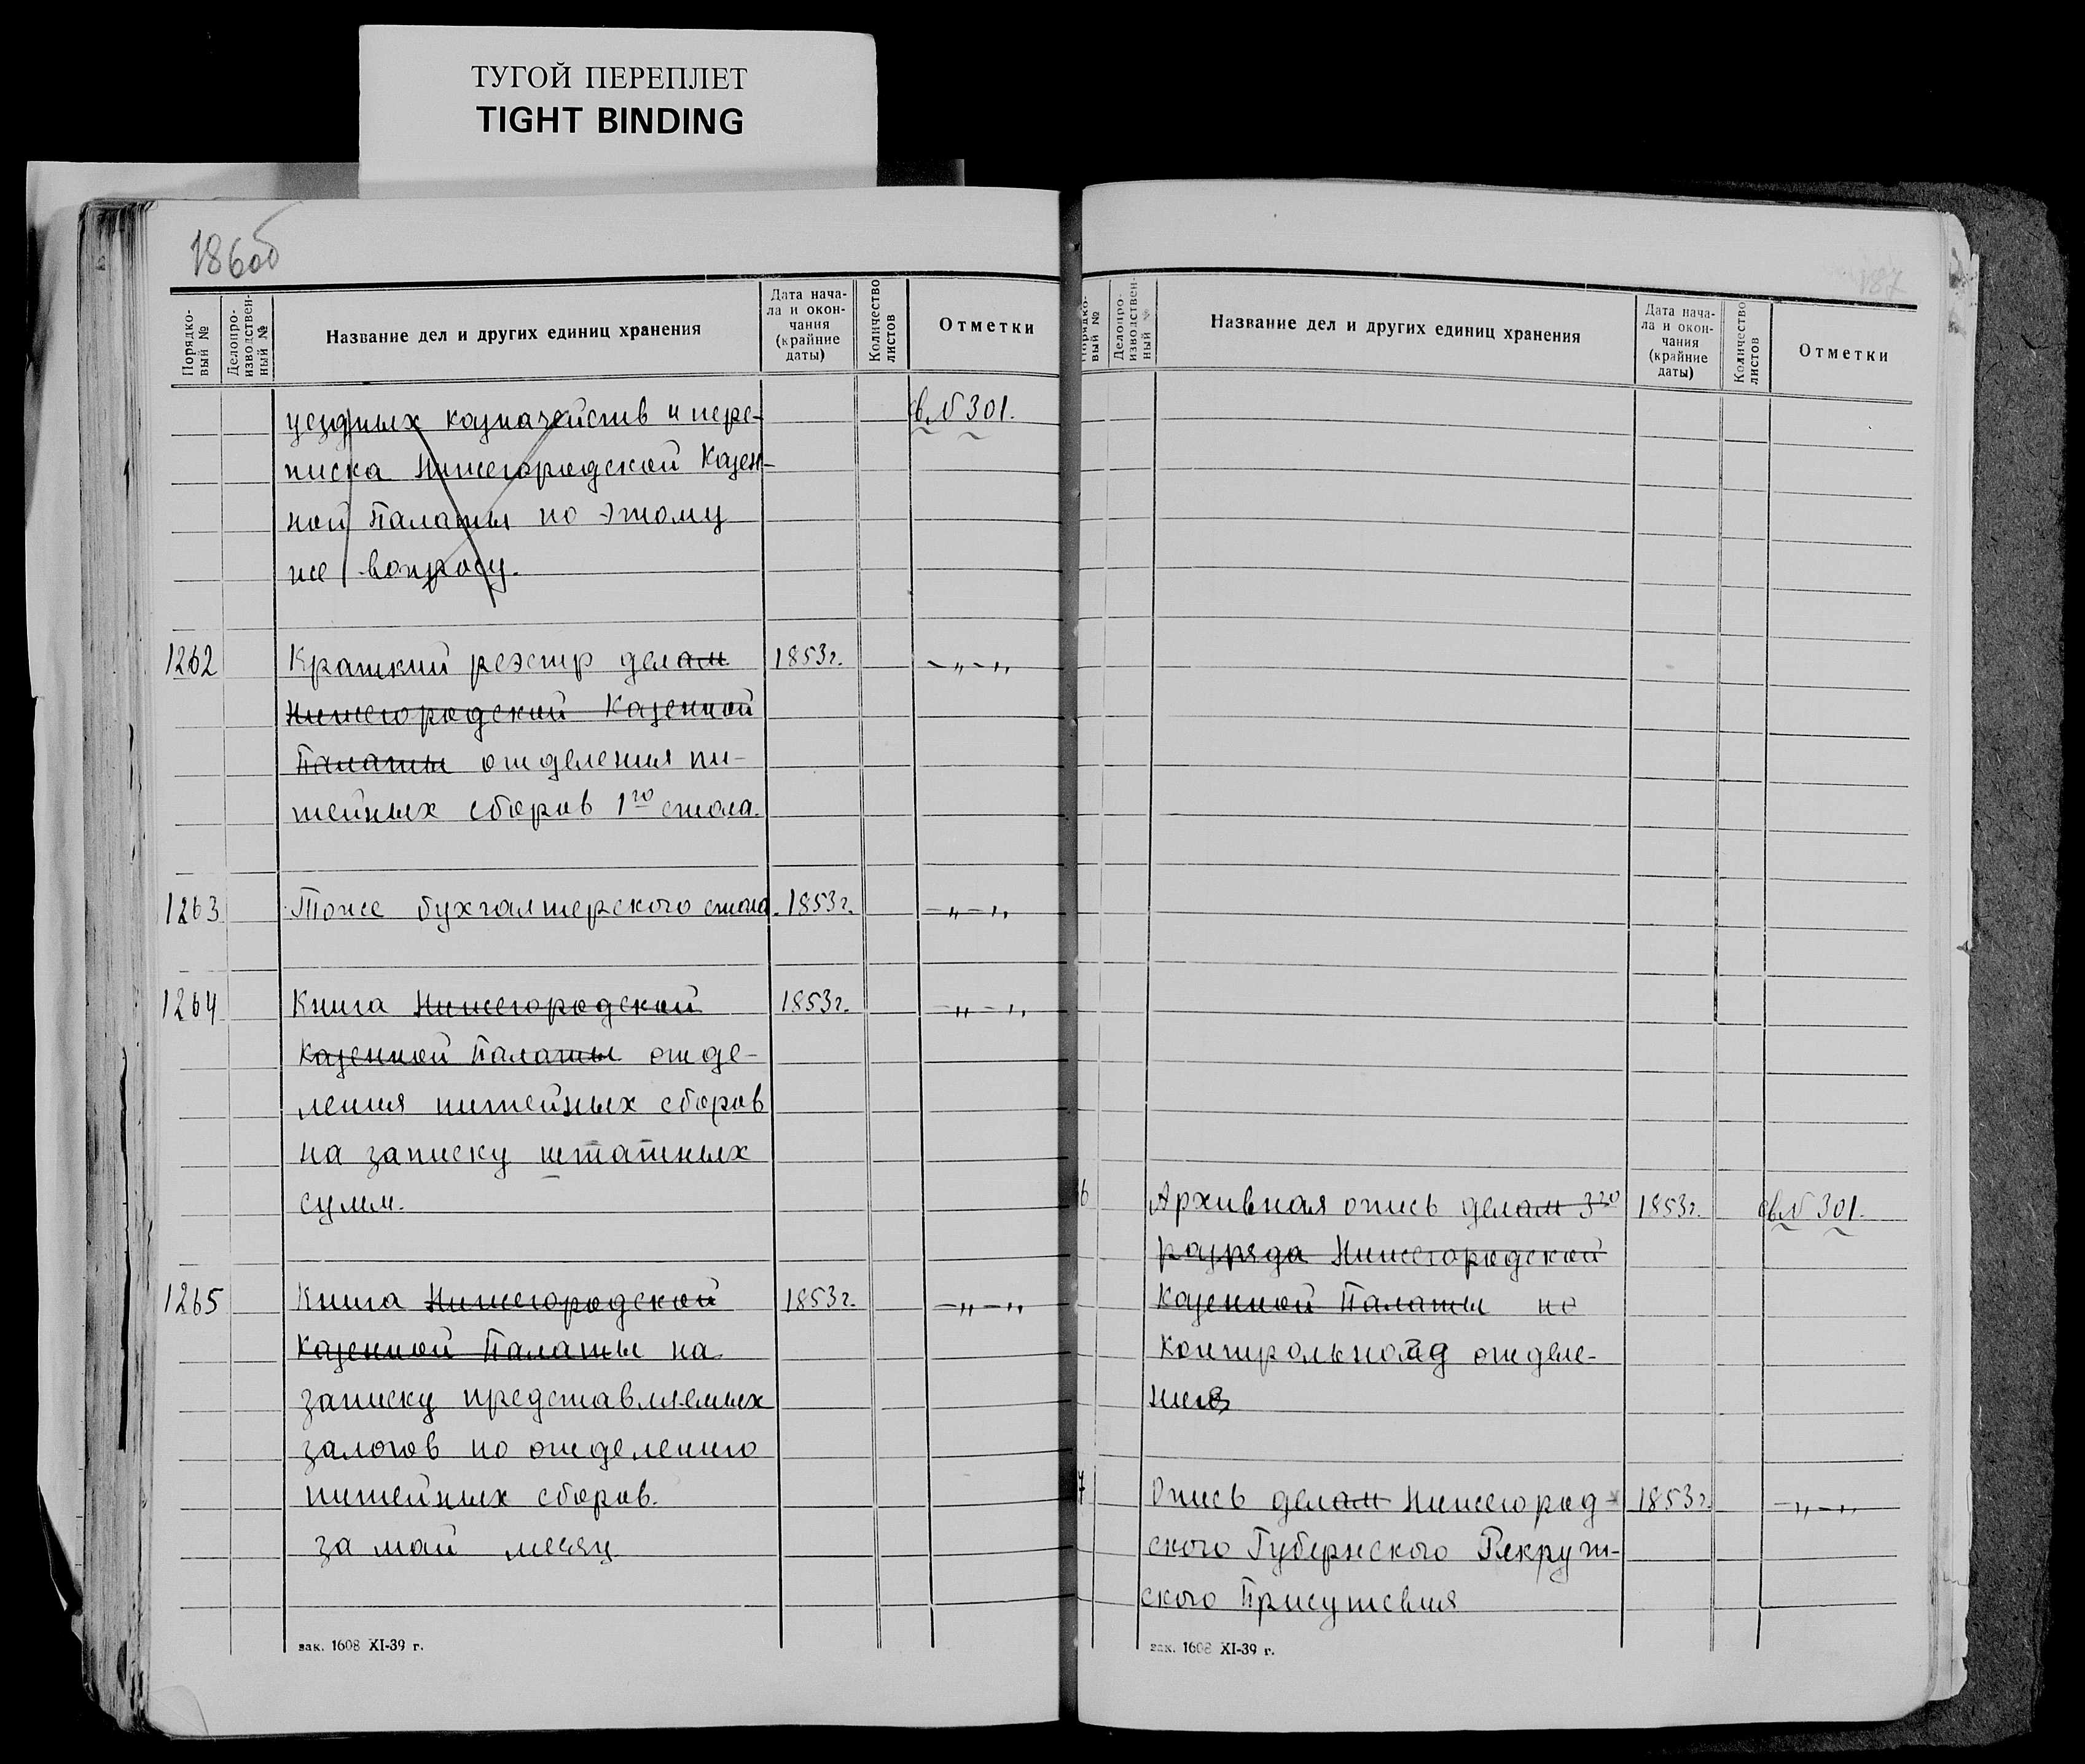 ТУГОЙ ПЕРЕПЛЕТ
TIGHT BINDING
186об
Порядковый №
Делопроизводственный №
Название дел и других единиц хранения
Дата начала и окончания (крайние даты)
Количество листов
Отметки
уездных казначейств и пере- св.№301.
писка Нижегородской Казен-
ной Палаты по этому
же вопросу.
1262 Краткий реэстр делам 1853г. -„-„
Нижегородской Казенной
Палаты отделения пи-
тейных сборов 1го стола.
1263 Тоже бухгалтерского стола. 1853г. -„-„
1264 Книга Нижегородской 1853г. -„-„
Казенной Палаты отде-
ления питейных сборов
на записку штатных
сумм.
1265 Книга Нижегородской 1853г. -„-„
Казенной Палаты на
записку представляемых
залогов по отделению
питейных сборов.
за май месяц
зак. 1608 XI-39 г.
187
Порядковый №
Делопроизводственный №
Название дел и других единиц хранения
Дата начала и окончания (крайние даты)
Количество листов
Отметки
6 Архивная опись делам 3го 1853г. св.№301.
разряда Нижегородской
Казенной Палаты по
отделе-
7 Опись делам Нижегород- 1853г. -„-„
ского Губернского Рекрут-
ского Присутсвия
зак. 1608 XI-39 г.